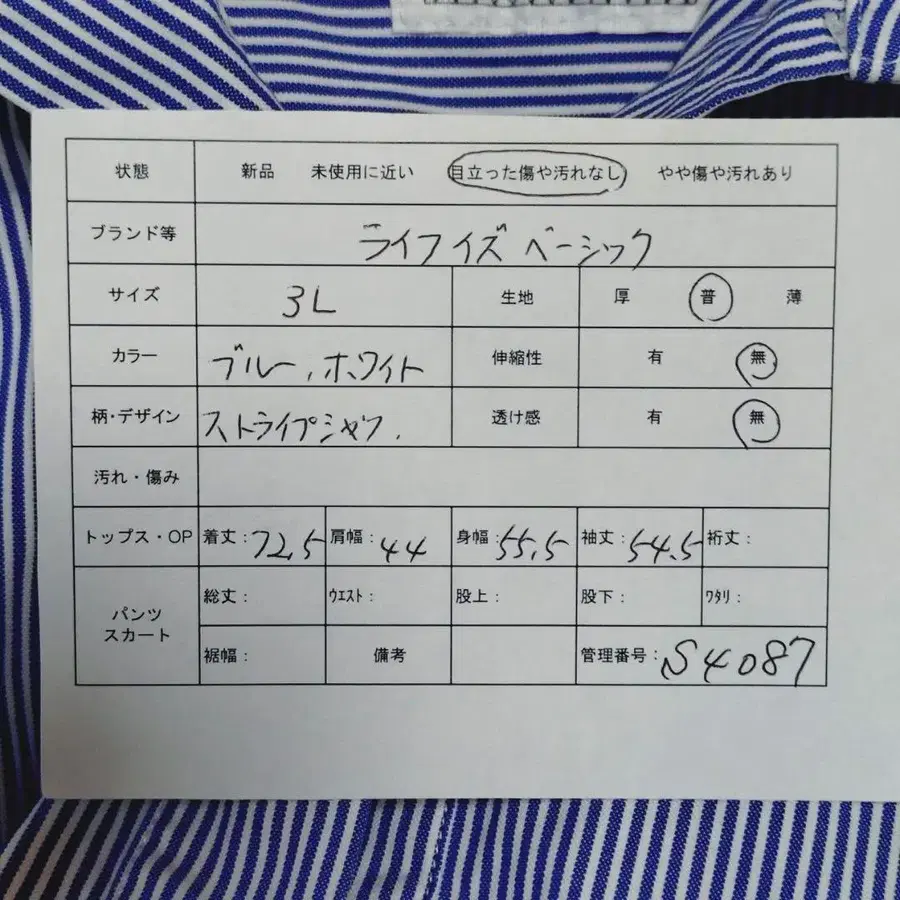 状態 新品 未使用に近い 目立った傷や汚れなし やや傷や汚れあり
ブランド等 ライフイズベーシック
サイズ 3L 生地 厚 普 薄
カラー ブルー、ホワイト 伸縮性 有 無
柄・デザイン ストライプシャツ. 透け感 有 無
汚れ・傷み
トップス・OP 着丈:72.5 肩幅:44 身幅:55.5 袖丈:54.5 裄丈:
パンツ スカート 総丈: ウエスト: 股上: 股下: ワタリ:
裾幅: 備考 管理番号:S4087